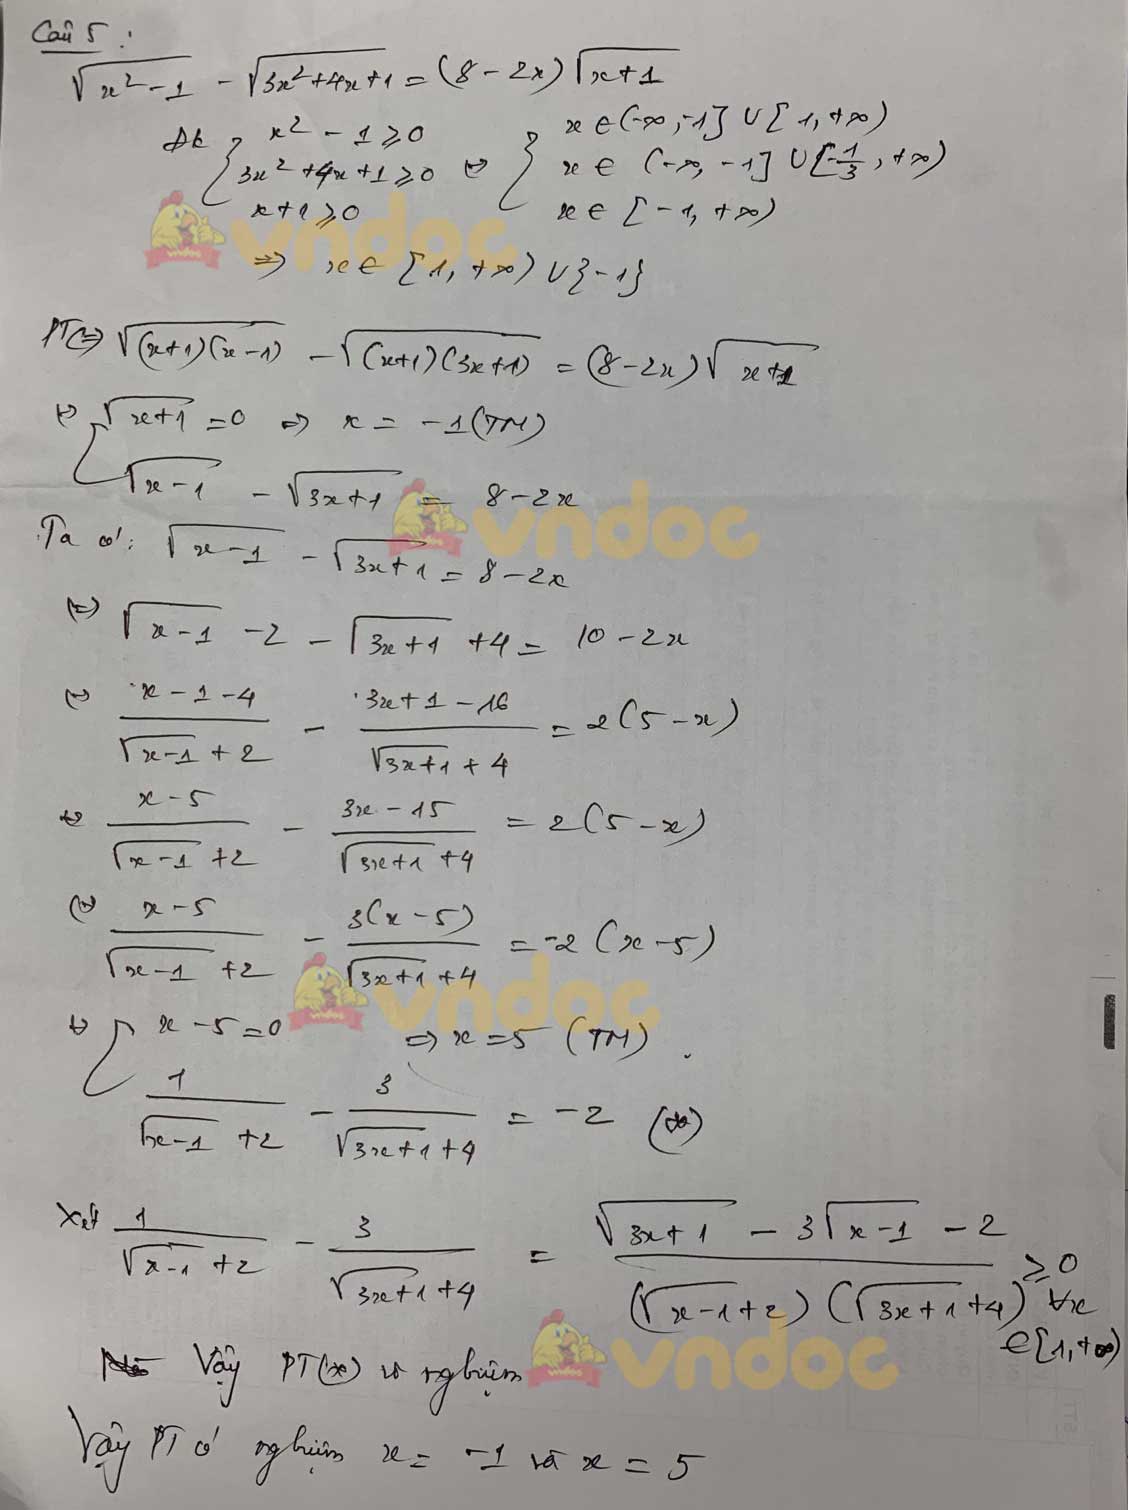 Câu 5 :
√(x² - 1) - √(3x² + 4x + 1) = (8 - 2x)√(x + 1)
ĐK { x² - 1 ≥ 0 ; 3x² + 4x + 1 ≥ 0 ; x + 1 ≥ 0 ⇔ { x ∈ (-∞, -1] ∪ [1, +∞) ; x ∈ (-∞, -1] ∪ [-1/3, +∞) ; x ∈ [-1, +∞)
⇒ x ∈ [1, +∞) ∪ {-1}
PT ⇔ √((x+1)(x-1)) - √((x+1)(3x+1)) = (8 - 2x)√(x+1)
⇔ [ √(x+1) = 0 ⇒ x = -1 (TM)
√(x-1) - √(3x+1) = 8 - 2x
Ta có: √(x-1) - √(3x+1) = 8 - 2x
⇔ √(x-1) - 2 - √(3x+1) + 4 = 10 - 2x
⇔ (x - 1 - 4)/(√(x-1) + 2) - (3x + 1 - 16)/(√(3x+1) + 4) = 2(5 - x)
⇔ (x - 5)/(√(x-1) + 2) - (3x - 15)/(√(3x+1) + 4) = 2(5 - x)
⇔ (x - 5)/(√(x-1) + 2) - 3(x - 5)/(√(3x+1) + 4) = -2(x - 5)
⇔ [ x - 5 = 0 ⇒ x = 5 (TM).
1/(√(x-1) + 2) - 3/(√(3x+1) + 4) = -2 (*)
Xét 1/(√(x-1) + 2) - 3/(√(3x+1) + 4) = (√(3x+1) - 3√(x-1) - 2)/((√(x-1) + 2)(√(3x+1) + 4)) ≥ 0 ∀x
∈ [1, +∞)
Vậy PT(*) vô nghiệm
Vậy PT có nghiệm x = -1 và x = 5
vndoc
vndoc
vndoc
vndoc